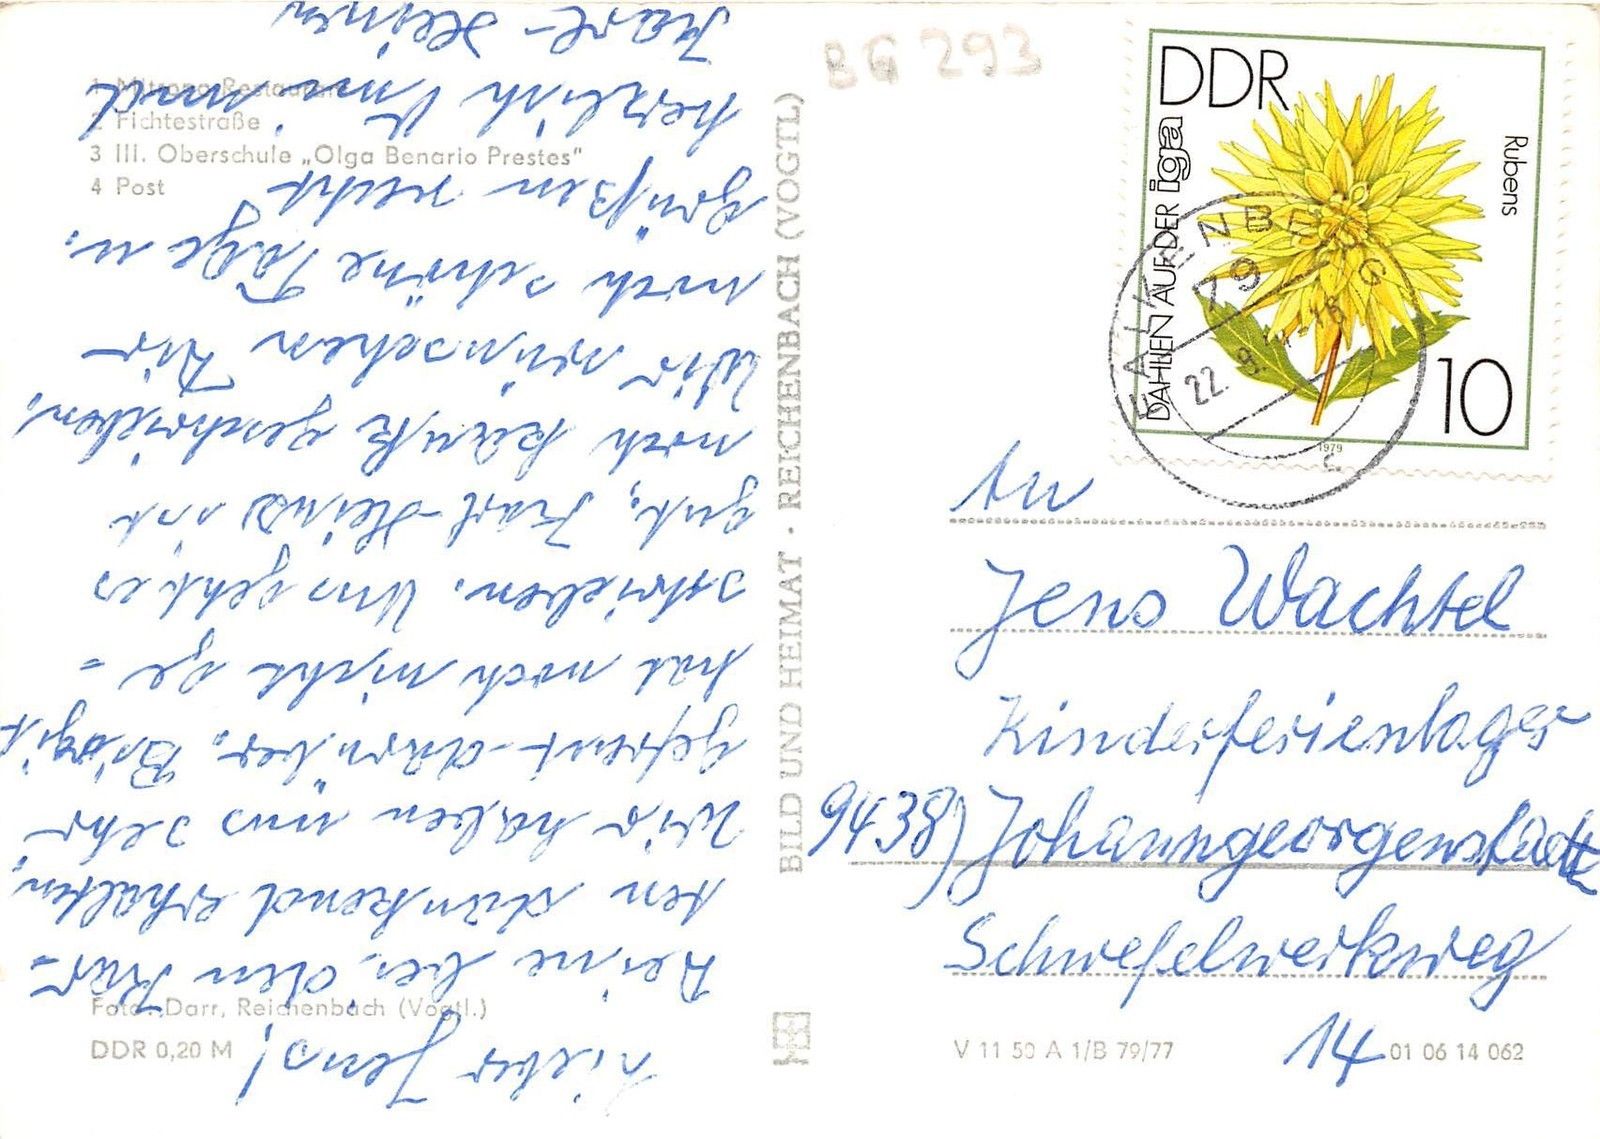 1 Mitropa-Restaurant
2 Fichtestraße
3 III. Oberschule „Olga Benario Prestes"
4 Post
Lieber Jens!
Deine beiden Kar-
ten dankend erhalten,
Wir haben uns sehr
gefreut darüber. Birgit
hat noch nicht ge-
schrieben. Uns geht es
gut, Karl-Heinz ist
noch krank geschrieben.
Wir wünschen Dir
noch schöne Tage u.
Grüßen recht
herzlich Omi und
Karl-Heinz
Foto: Darr, Reichenbach (Vogtl.)
DDR 0,20 M
BILD UND HEIMAT · REICHENBACH (VOGTL)
BG 293
DDR
DAHLIEN AUF DER iga
Rubens
10
1979
FALKENBERG
79
22. 9.
An
Jens Wachtel
Kinderferienlager
9438) Johanngeorgenstadt
Schwefelwerkweg
14
V 11 50 A 1/B 79/77
01 06 14 062